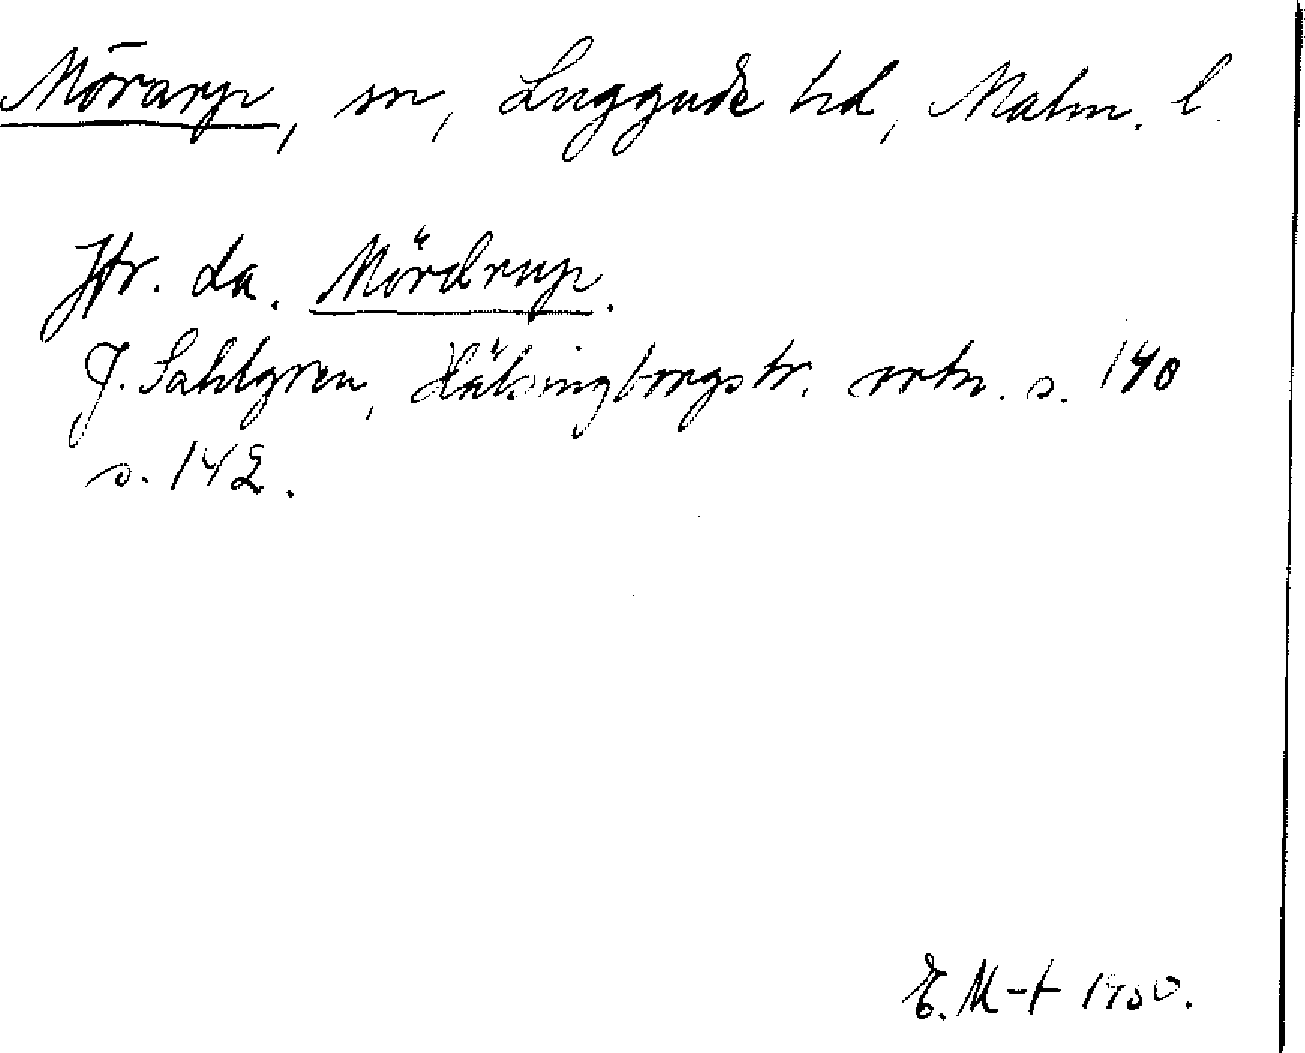 Mörarp, sn, Luggude hd, Malm. l.
Jfr. da. Mördrup.
J. Sahlgren, Hälsingborgstr. ortn. s. 140
s. 142.
E. M-t 1950.